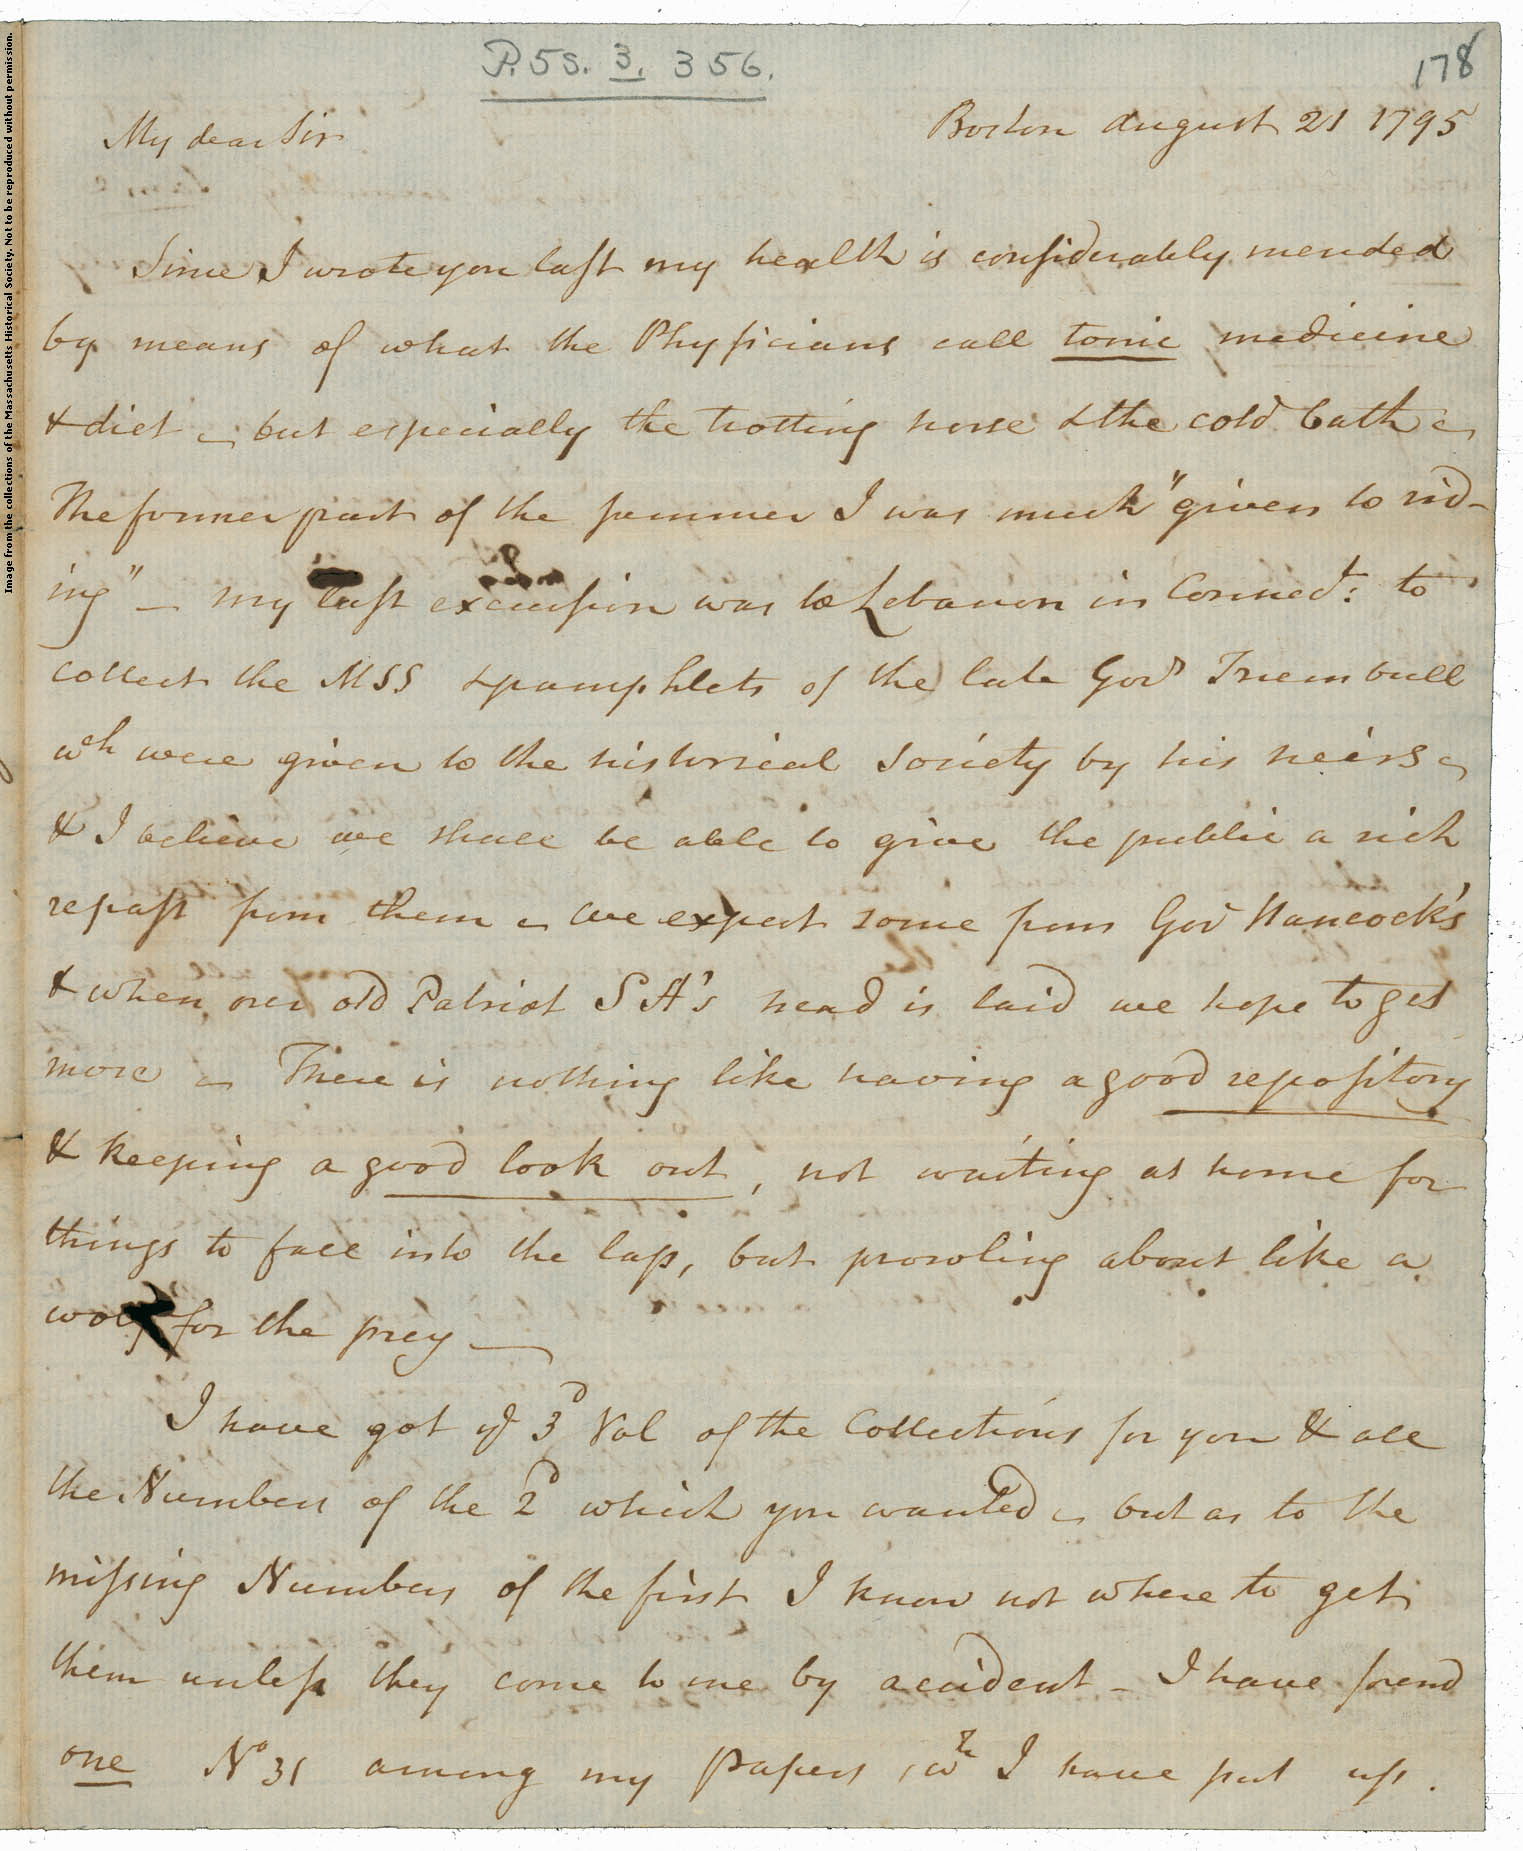 P. 5S. 3. 356.
178
Boston August 21 1795
My dear Sir
Since I wrote you last my health is considerably mended
by means of what the Physicians call tonic medicine
& diet – but especially the trotting horse & the cold bath –
The former part of the summer I was much "given to rid-
ing" – my last excursion was to Lebanon in Connect: to
collect the MSS & pamphlets of the late Govr Trumbull
wch were given to the historical Society by his heirs –
& I believe we shall be able to give the public a rich
repast from them – we expect some from Govr Hancock's
& when our old Patriot S A's head is laid we hope to get
more – There is nothing like having a good repository
& keeping a good look out, not waiting at home for
things to fall into the lap, but prowling about like a
wolf for the prey —
I have got ye 3d Vol of the Collections for you & all
the Numbers of the 2d which you wanted – but as to the
missing Numbers of the first I know not where to get
them unless they come to me by accident – I have found
one No 31 among my papers, wh I have put up.
Image from the collections of the Massachusetts Historical Society. Not to be reproduced without permission.